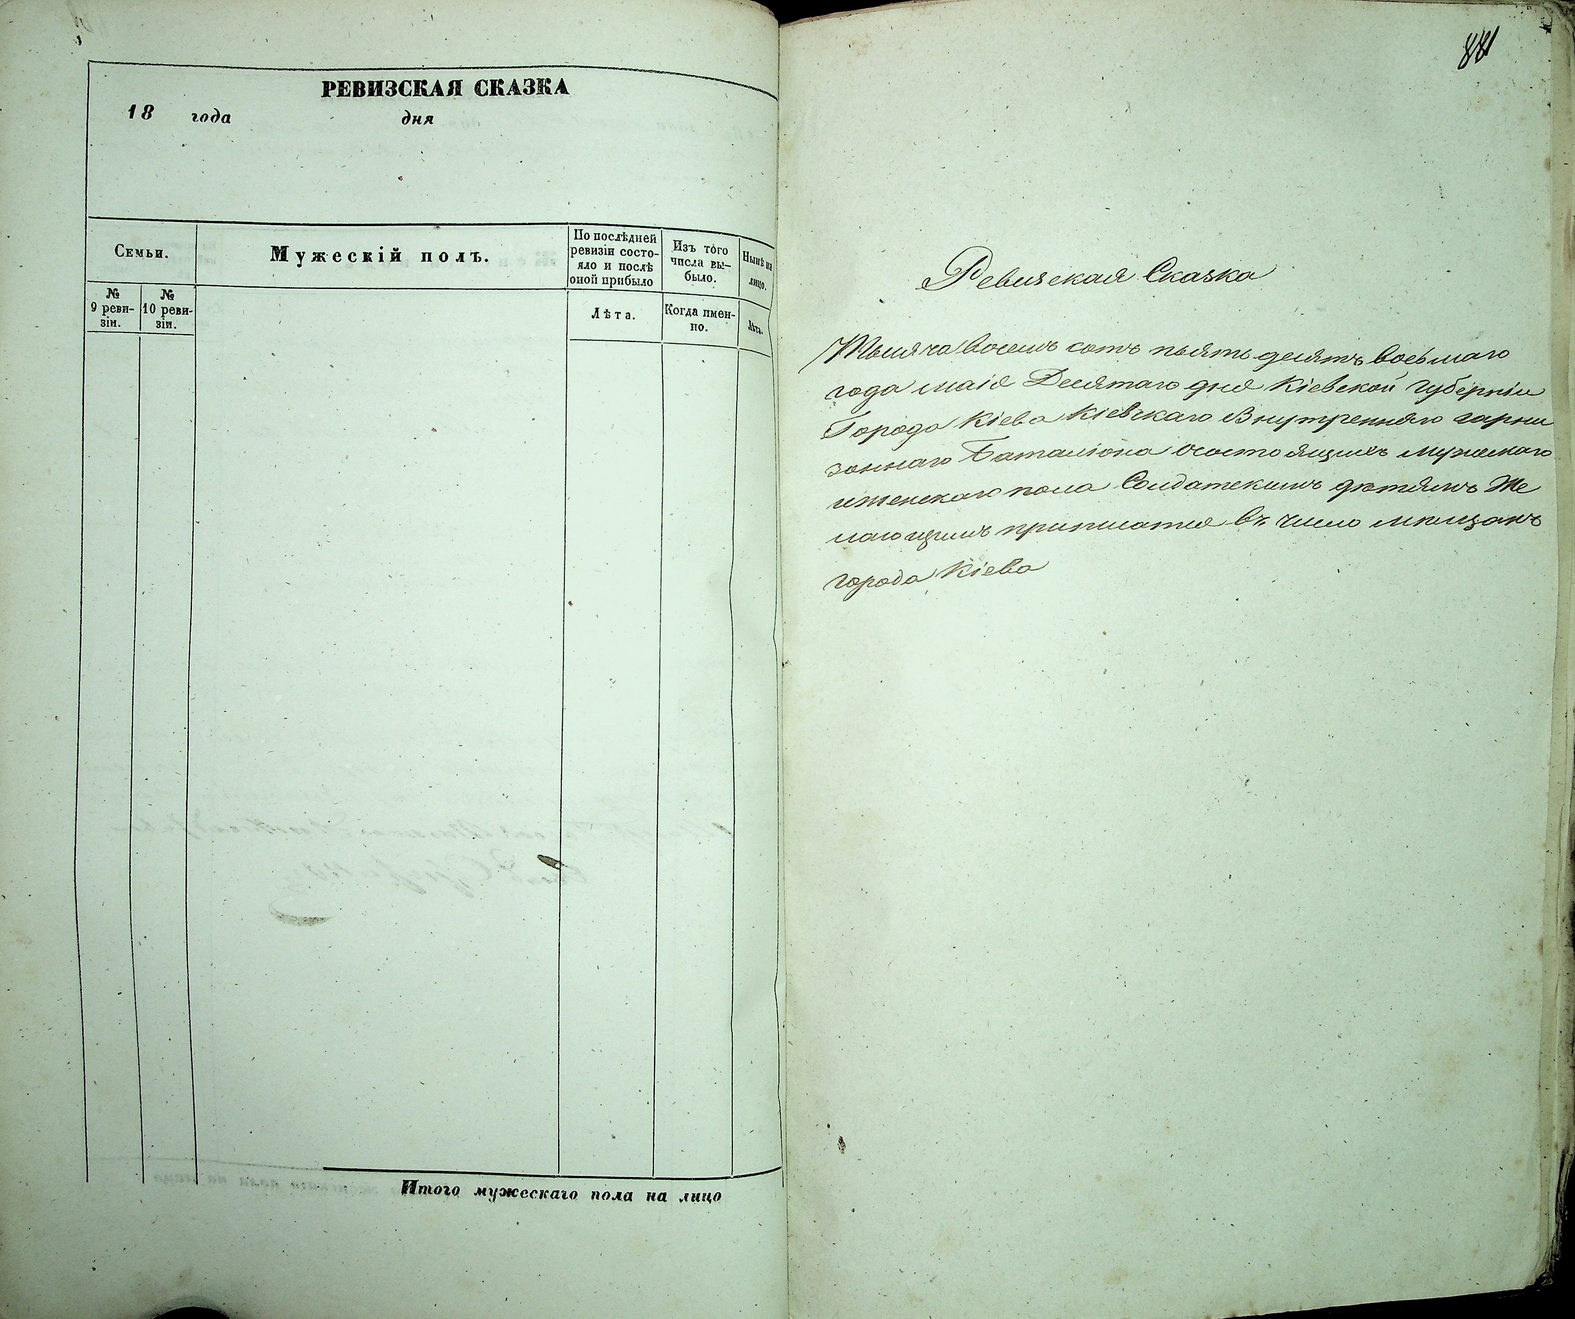 РЕВИЗСКАЯ СКАЗКА
18 года дня
Семьи.
№ 9 реви-
зіи.
№ 10 реви-
зіи.
Мужескій полъ.
По послѣдней
ревизіи состо-
яло и послѣ
оной прибыло
Лѣта.
Изъ того
числа вы-
было.
Когда имен-
но.
Нынѣ на
лицо.
Лѣта.
Итого мужескаго пола на лицо
881
Ревизская Сказка
Тысяча восемь сотъ пять десятъ восьмаго
года маія Десятаго дня Кіевской Губерніи
Города Кіева Кіевскаго Внутренняго гарни
зоннаго Баталіона о состоящихъ мужескаго
и женскаго пола Солдатскимъ дѣтямъ Же
лающимъ приписатся въ число мещанъ
города Кіева